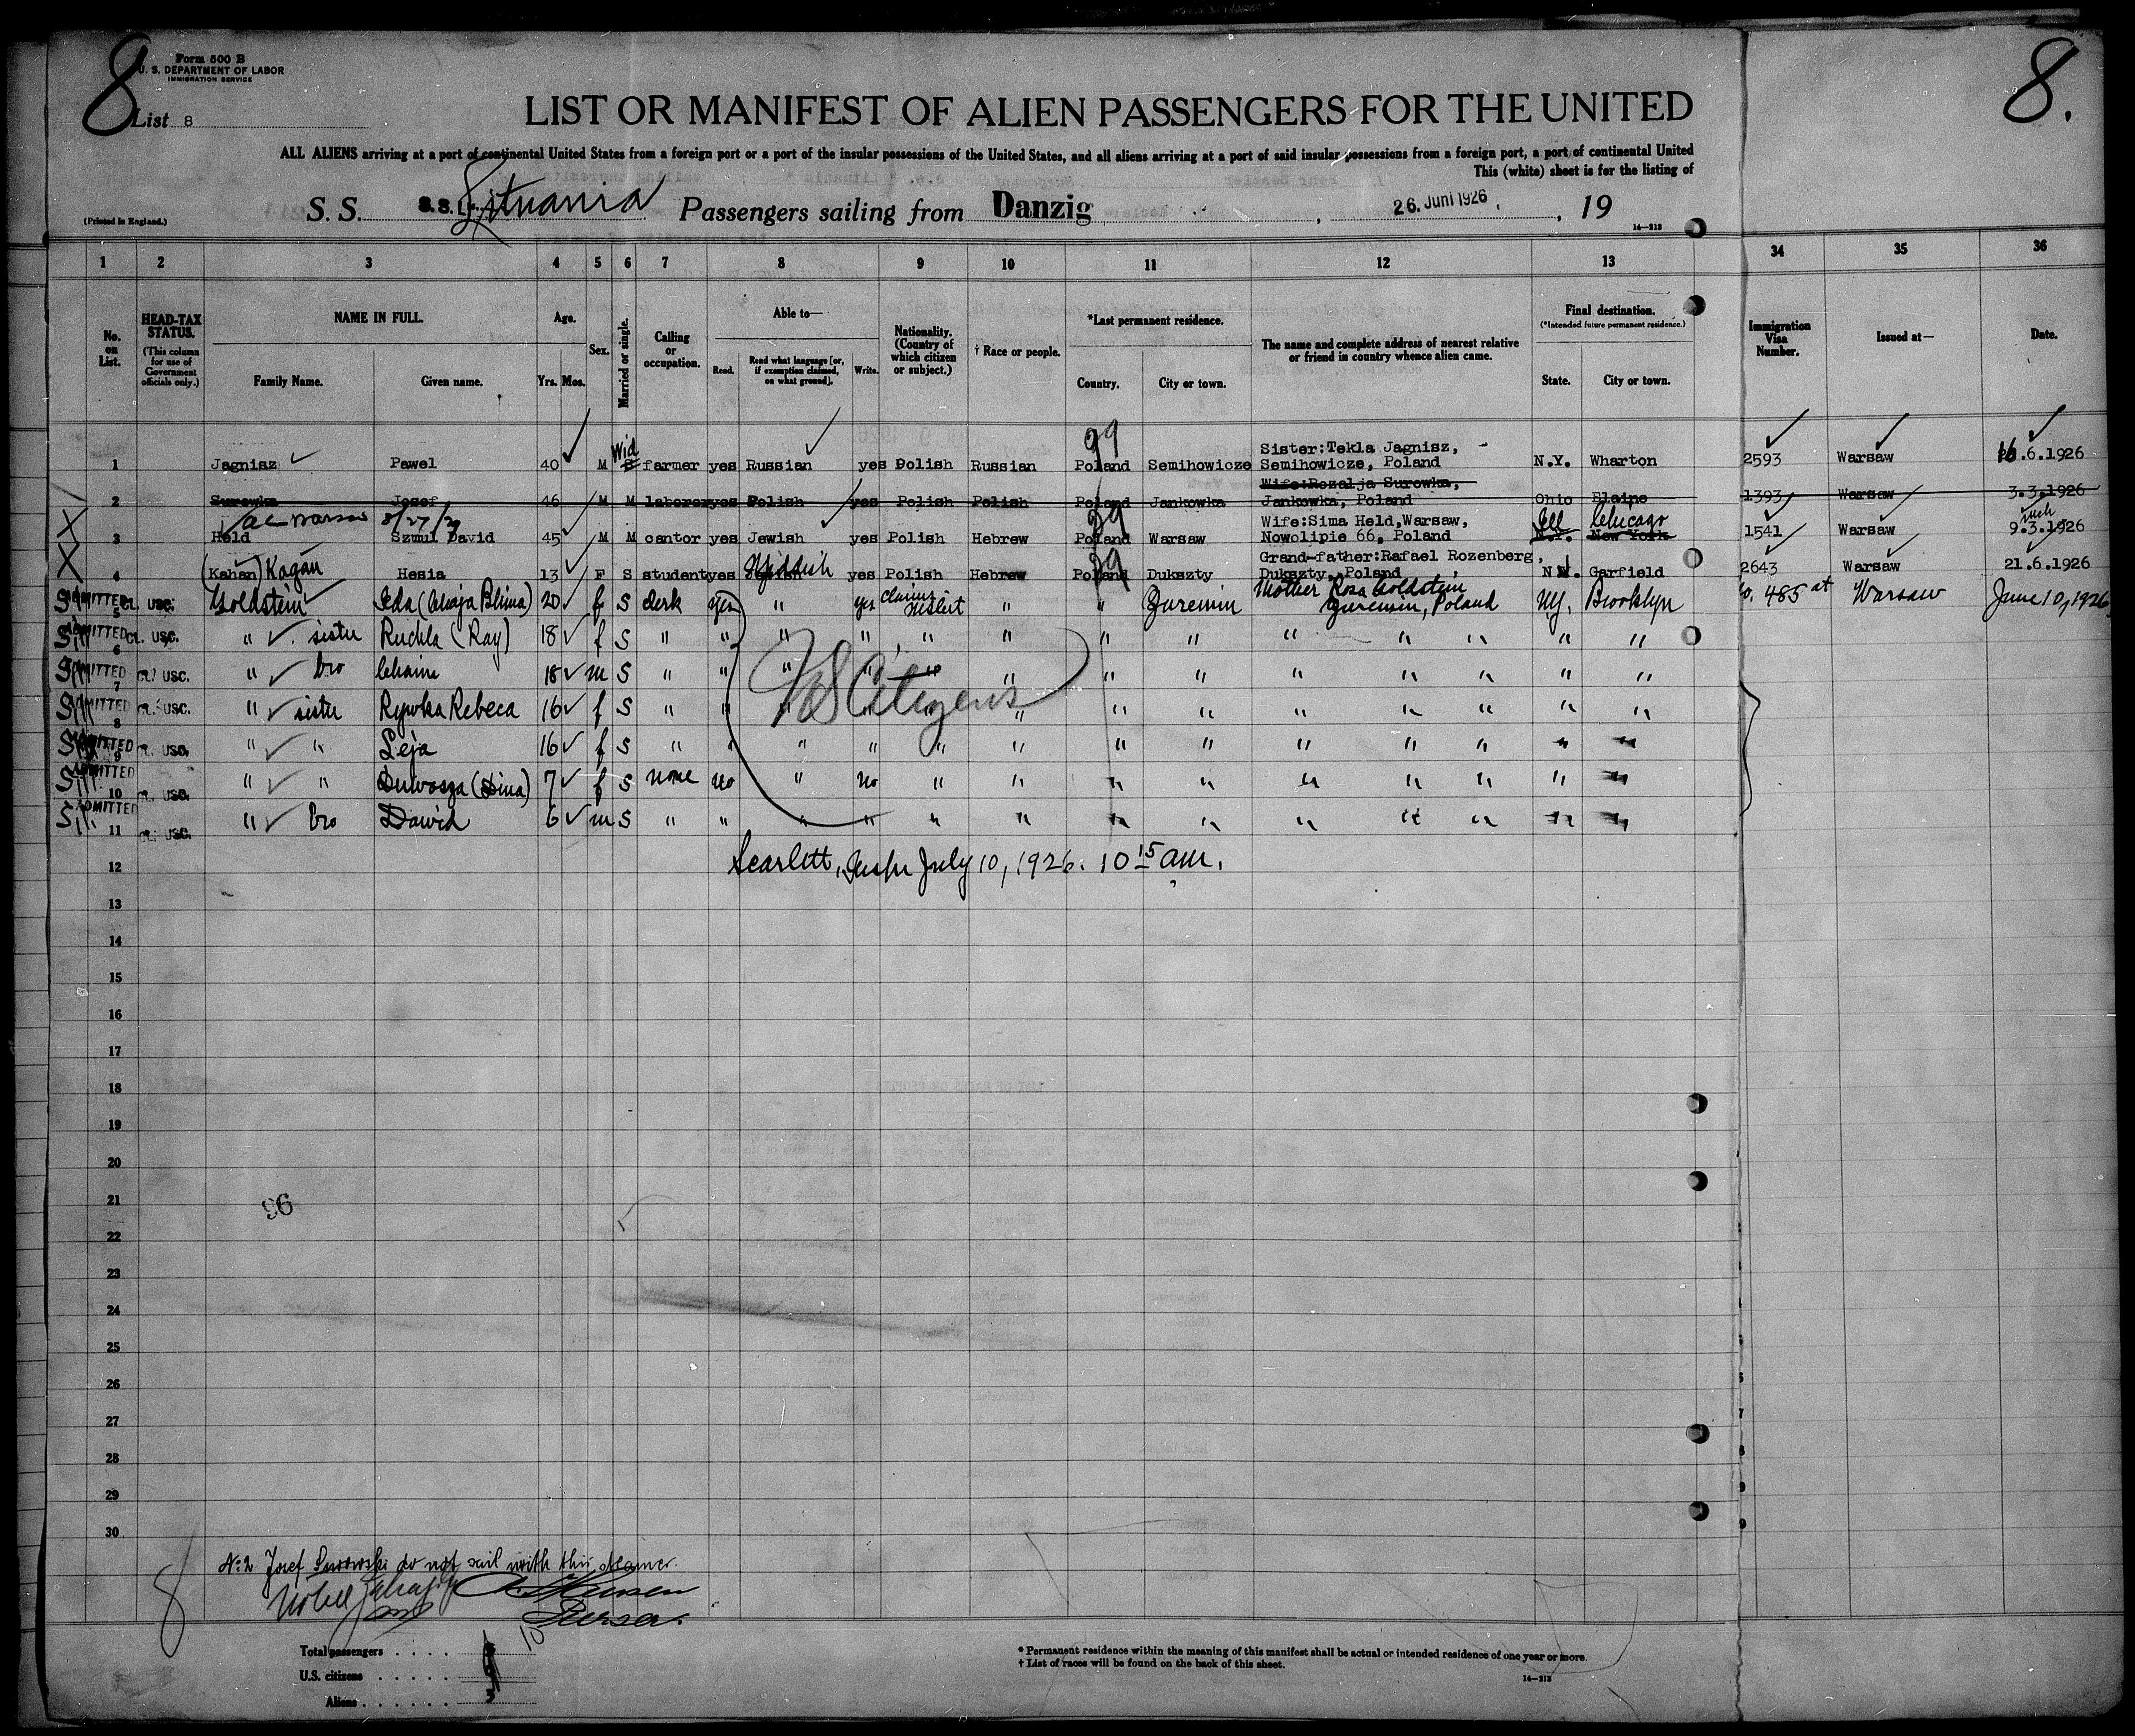 8
Form 500 B
U. S. DEPARTMENT OF LABOR
IMMIGRATION SERVICE
8.
List 8
LIST OR MANIFEST OF ALIEN PASSENGERS FOR THE UNITED
ALL ALIENS arriving at a port of continental United States from a foreign port or a port of the insular possessions of the United States, and all aliens arriving at a port of said insular possessions from a foreign port, a port of continental United
This (white) sheet is for the listing of
(Printed in England.)
S. S. S.S. Lituania Passengers sailing from Danzig, 26. Juni 1926, 19
14—213
1 2 3 4 5 6 7 8 9 10 11 12 13 34 35 36
No. on List.
HEAD-TAX STATUS.
(This column for use of Government officials only.)
NAME IN FULL.
Family Name. Given name.
Age.
Yrs. Mos.
Sex.
Married or single.
Calling or occupation.
Able to—
Read. Read what language [or, if exemption claimed, on what ground]. Write.
Nationality. (Country of which citizen or subject.)
† Race or people.
*Last permanent residence.
Country. City or town.
The name and complete address of nearest relative or friend in country whence alien came.
Final destination.
(*Intended future permanent residence.)
State. City or town.
Immigration Visa Number.
Issued at—
Date.
Wid 99 Sister:Tekla Jagnisz,
1 Jagnisz Pawel 40 M S farmer yes Russian yes Polish Russian Poland Semihowicze Semihowicze, Poland N.Y. Wharton 2593 Warsaw 16.6.1926
Wife:Rozalja Surowka,
2 Surowka Josef 46 M M laborer yes Polish yes Polish Polish Poland Jankowka Jankowka, Poland Ohio Blaine 1393 Warsaw 3.3.1926
8/27/29 99 Wife:Sima Held,Warsaw, Ill Chicago
X 3 Held Szmul David 45 M M cantor yes Jewish yes Polish Hebrew Poland Warsaw Nowolipie 66, Poland N.Y. New York 1541 Warsaw 9.3.1926
99 Grand-father:Rafael Rozenberg,
X 4 (Kahan) Kagan Hesia 13 F S student yes Yiddish yes Polish Hebrew Poland Dukszty Dukszty, Poland N.J. Garfield 2643 Warsaw 21.6.1926
ADMITTED 5 CL. USC. Goldstein Ida (Chaja Blima) 20 f S clerk yes " yes claims " " Zuremin Mother Rosa Goldstein Zuremin, Poland NY. Brooklyn No. 485 at Warsaw June 10, 1926
ADMITTED 6 CL. USC. " sister Ruchla (Ray) 18 f S " " " " " " " " " " " " "
ADMITTED 7 CL. USC. " bro Chaim 18 m S " " " " " " " " " " " " "
US Citizens
ADMITTED 8 CL. USC. " sister Rywka Rebeca 16 f S " " " " " " " " " " " "
ADMITTED 9 CL. USC. " " Leja 16 f S " " " " " " " " " " " " "
ADMITTED 10 CL. USC. " " (Dina) 7 f S none no " no " " " " " " " " "
ADMITTED 11 CL. USC. " bro Dawid 6 m S " " " " " " " " " " " " "
12 Scarlett, Inspr July 10, 1926. 10 15 am.
13
14
15
16
17
18
19
20
21
96
22
23
24
25
26
27
28
29
30
No 2 Josef Surowski do not sail with this steamer.
8
Purser.
10
Total passengers
U.S. citizens
Aliens 3
* Permanent residence within the meaning of this manifest shall be actual or intended residence of one year or more.
† List of races will be found on the back of this sheet.
14—213